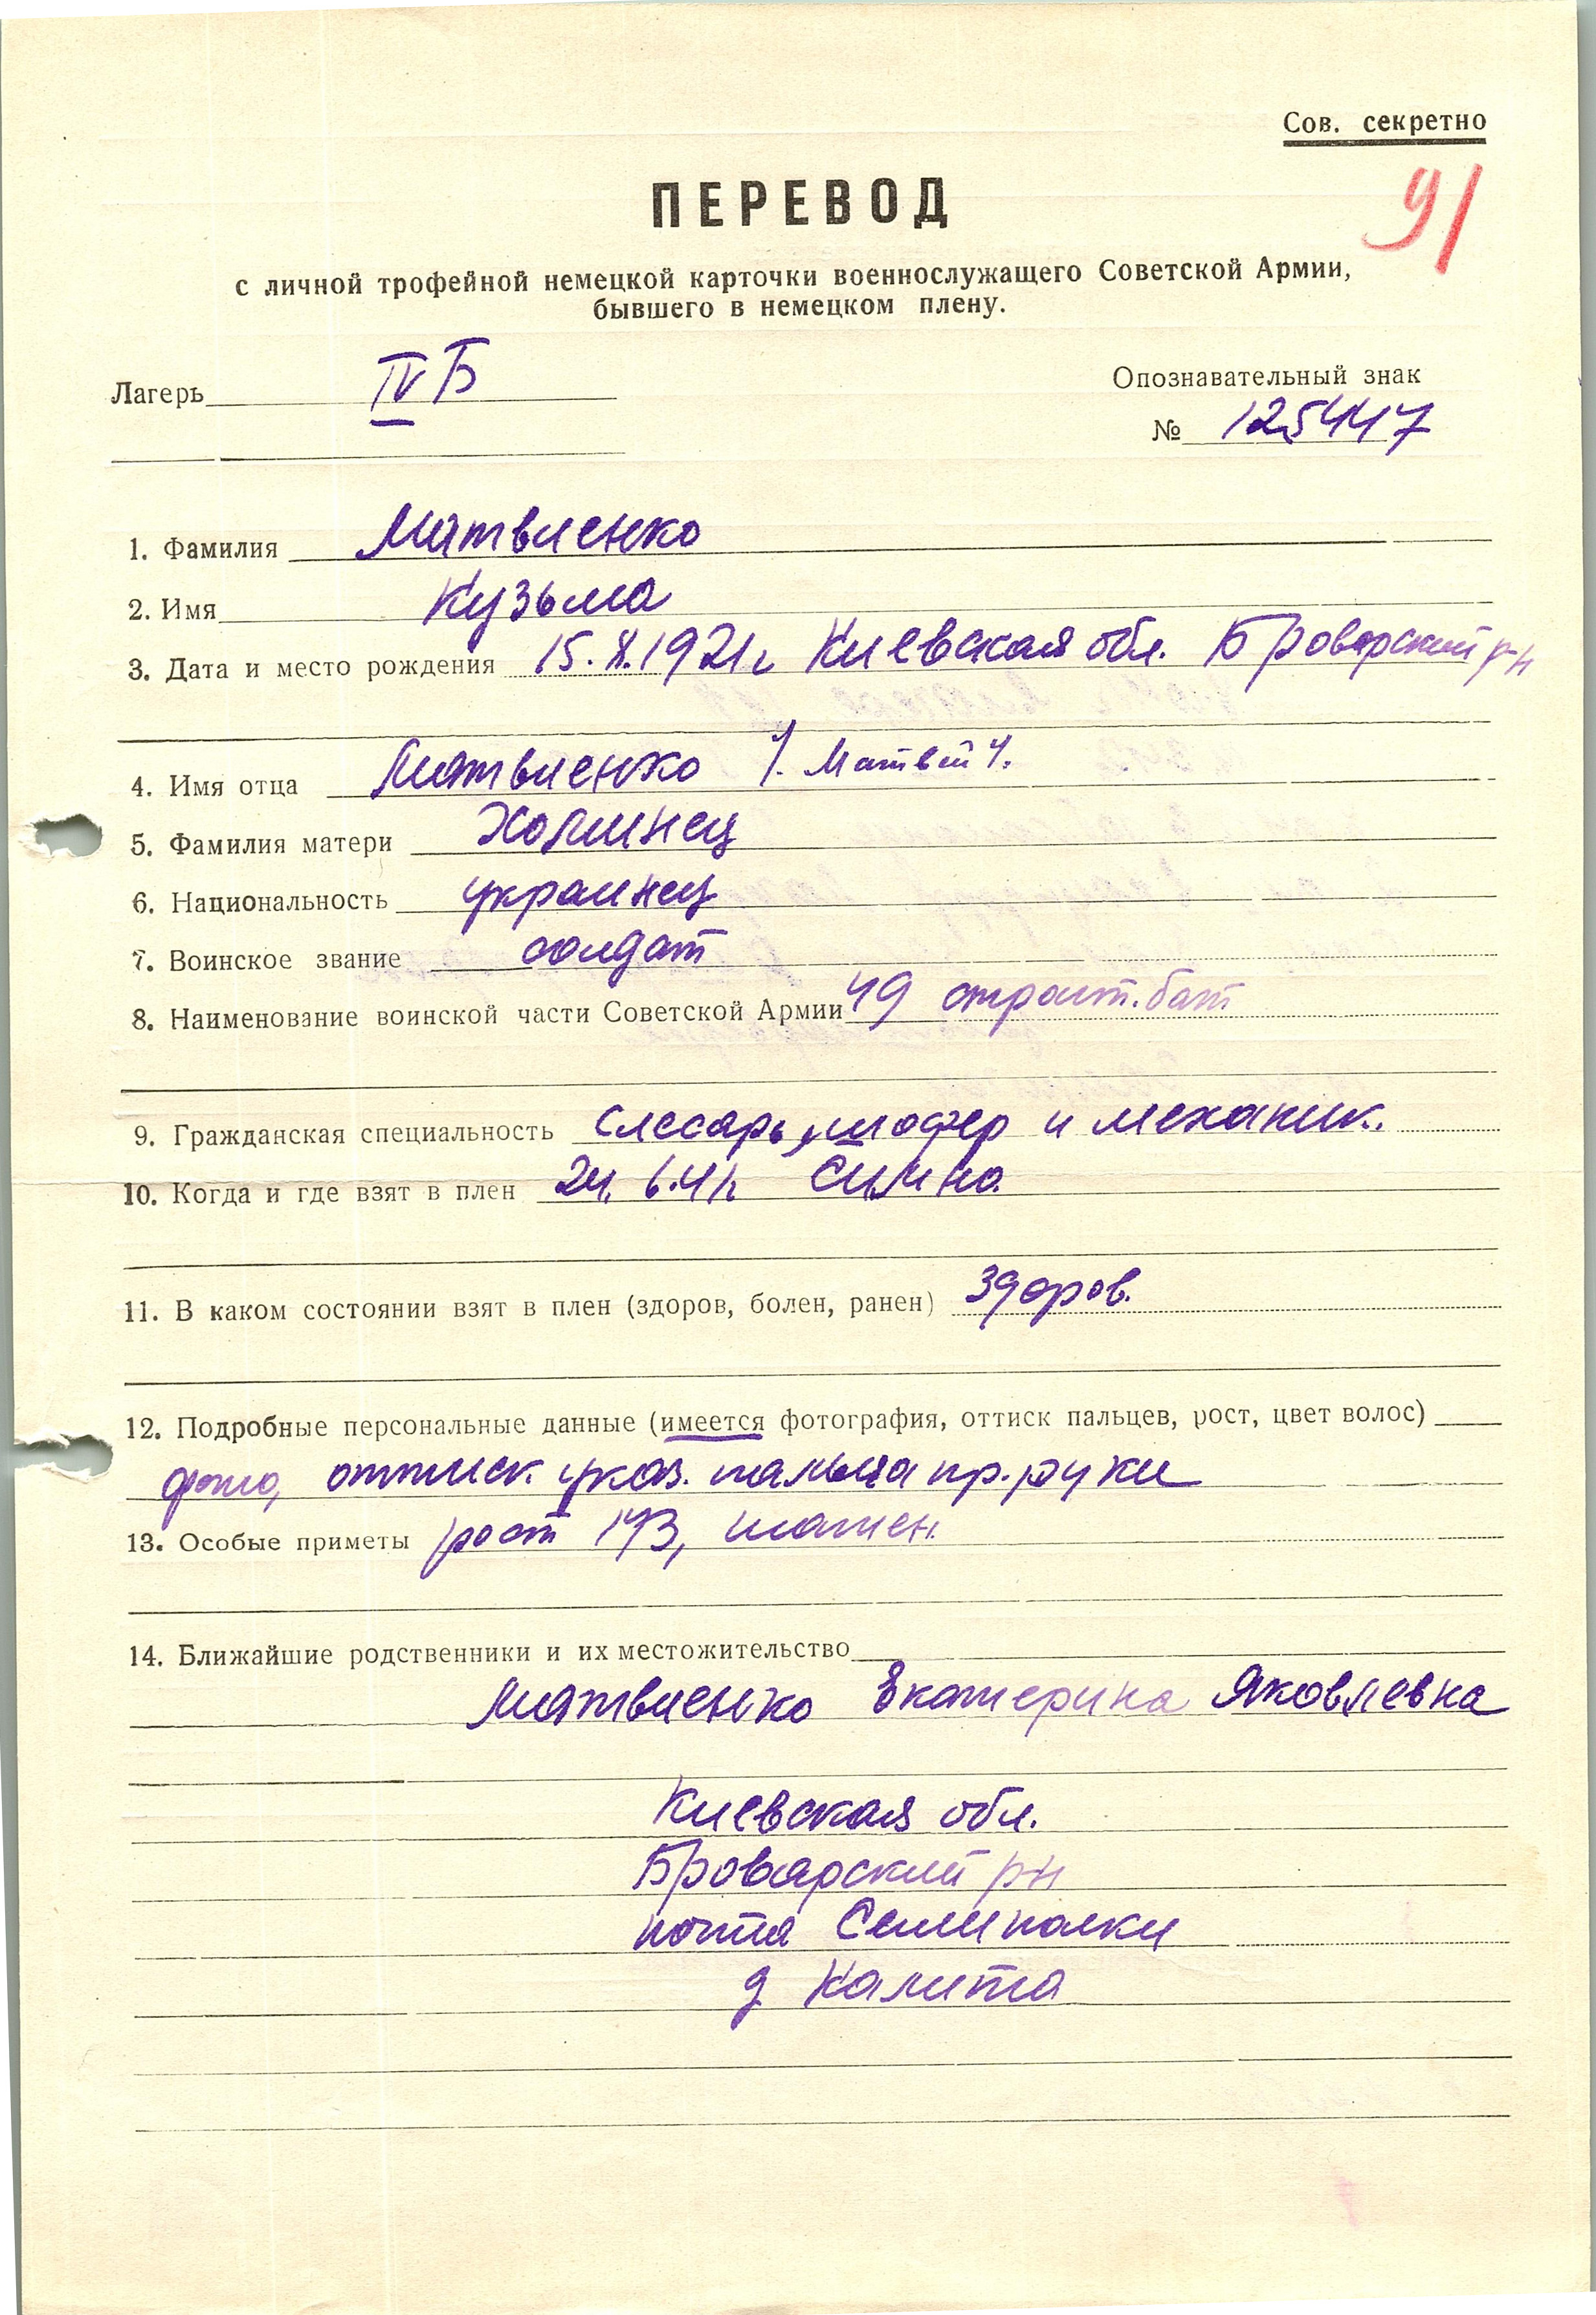 Сов. секретно
91
ПЕРЕВОД
с личной трофейной немецкой карточки военнослужащего Советской Армии,
бывшего в немецком плену.
Лагерь IV Б
Опознавательный знак
№ 125447
1. Фамилия Матвиенко
2. Имя Кузьма
3. Дата и место рождения 15.X.1921г Киевская обл. Броварский р-н
4. Имя отца Матвиенко Матвей
5. Фамилия матери Холинец
6. Национальность украинец
7. Воинское звание солдат
8. Наименование воинской части Советской Армии 49 строит. бат
9. Гражданская специальность слесарь, шофер и механик.
10. Когда и где взят в плен 24.6.41г. Симно
11. В каком состоянии взят в плен (здоров, болен, ранен) здоров.
12. Подробные персональные данные (имеется фотография, оттиск пальцев, рост, цвет волос)
фото, оттиск указ. пальца пр. руки
13. Особые приметы рост 173, шатен.
14. Ближайшие родственники и их местожительство
Матвиенко Екатерина Яковлевна
Киевская обл.
Броварский р-н
почта Семиполки
д Калита